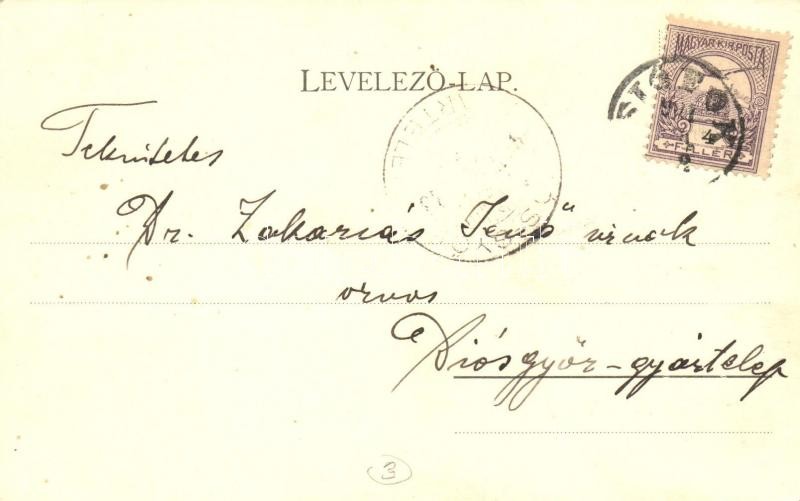 MAGYAR KIR. POSTA
FILLÉR
LEVELEZŐ-LAP.
Tekintetes
Dr. Zakariás Jenő úrnak
orvos
Diósgyőr-gyártelep
3